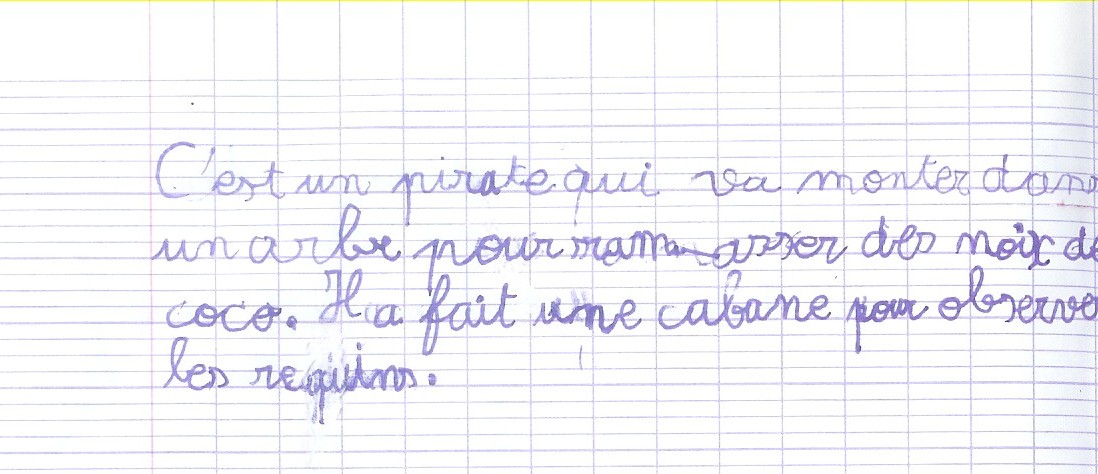 C'est un pirate qui va monter dans
un arbre pour ramasser des noix de
coco. Il a fait une cabane pour observe
les requins.